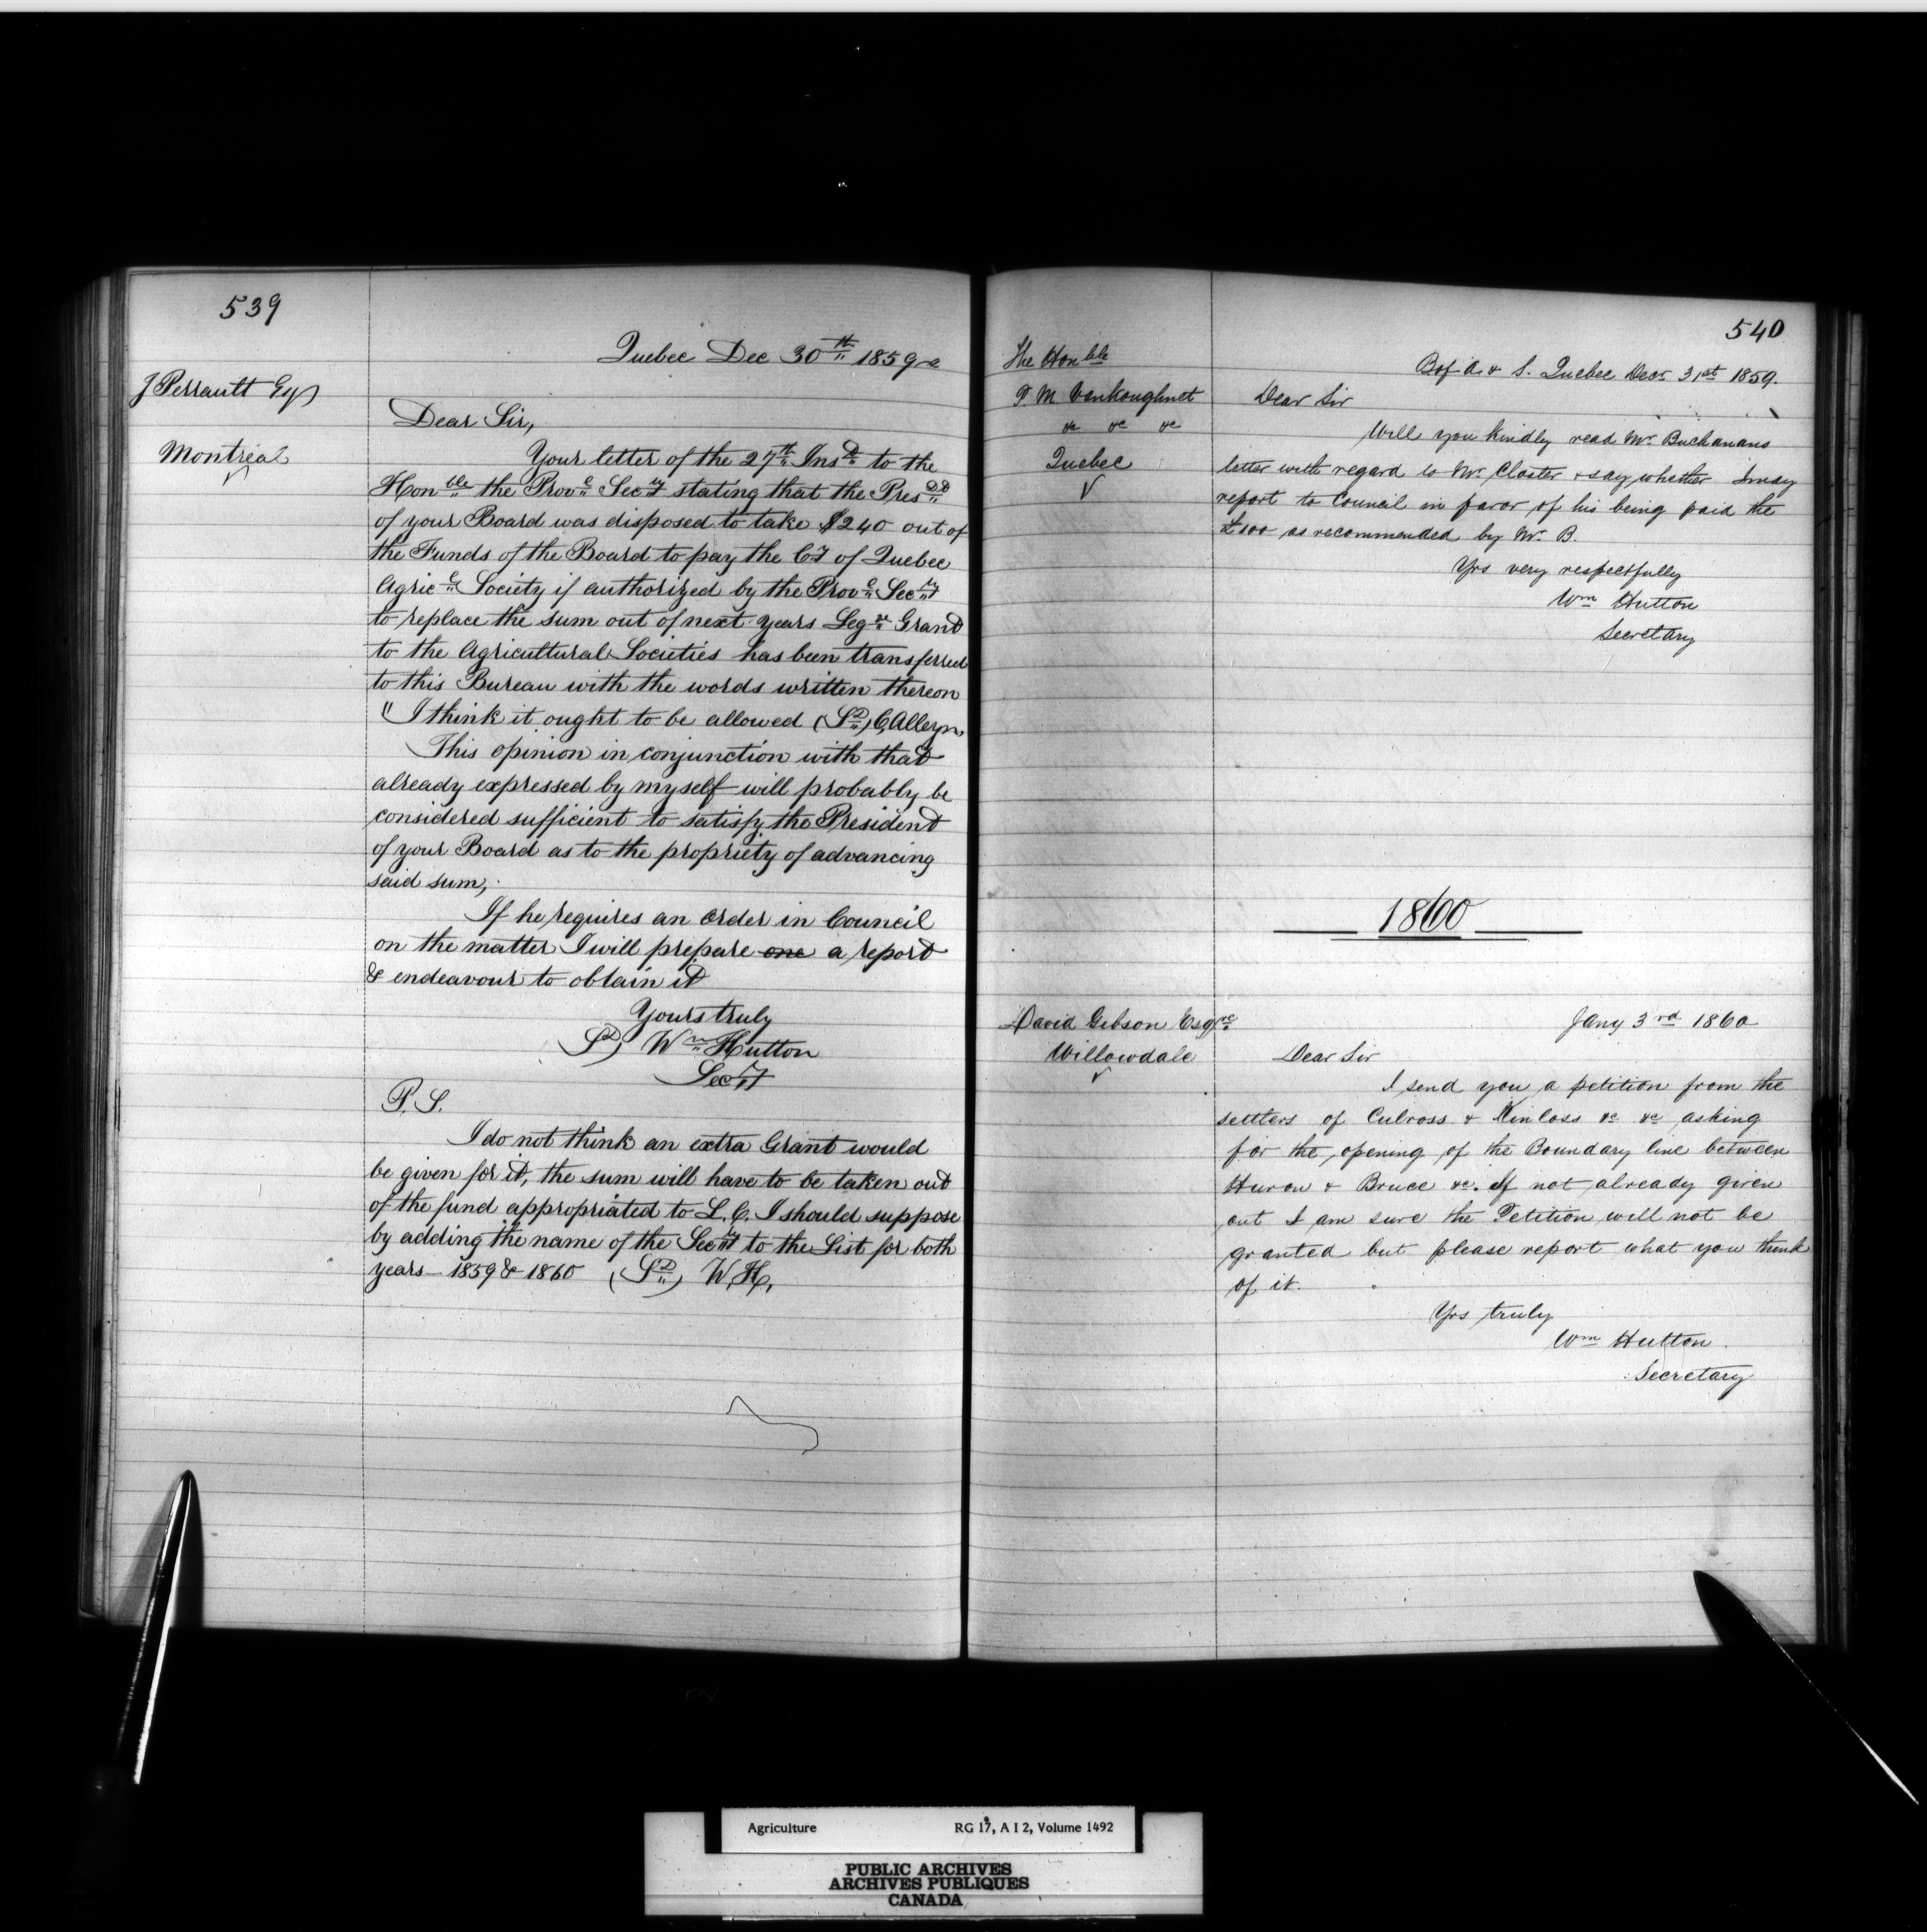 539
Quebec Dec 30th 1859
J Perrault Esq
Montreal
Dear Sir,
Your letter of the 27th Inst to the
Honble the Provl Secy stating that the Presdt
of your Board was disposed to take $240 out of
the Funds of the Board to pay the Cy of Quebec
Agricl Society if authorized by the Provl Secy
to replace the sum out of next years Legve Grant
to the Agricultural Societies has been transferred
to this Bureau with the words written thereon
"I think it ought to be allowed (Sd) C, Alleyn,
This opinion in conjunction with that
already expressed by myself will probably be
considered sufficient to satisfy the President
of your Board as to the propriety of advancing
said sum,
If he requires an order in Council
on the matter I will prepare one a report
& endeavour to obtain it
Yours truly
Sd) Wm Hutton
Secy
P.S.
I do not think an extra Grant would
be given for it, the sum will have to be taken out
of the fund appropriated to L.C. I should suppose
by adding the name of the Secy to the List for both
years 1859 & 1860 (Sd) W, H,
540
The Honble
P. M. Vankoughnet
&c &c &c
Quebec
B of A. & S. Quebec Decr 31st 1859.
Dear Sir
Will you kindly read Mr Buchanans
letter with regard to Mr. Closter & say whether I may
report to Council in favor of his being paid the
£100 as recommended by Mr. B.
Yrs very respectfully
Wm Hutton
Secretary
1860
David Gibson Esqre
Willowdale
Jany 3rd 1860
Dear Sir
I send you a petition from the
settlers of Culross & Kinloss &c &c asking
for the opening of the Boundary line between
Huron & Bruce &c. If not already given
out I am sure the Petition will not be
granted but please report what you think
of it.
Yrs truly
Wm Hutton.
Secretary
Agriculture RG 17, A I 2, Volume 1492
PUBLIC ARCHIVES
ARCHIVES PUBLIQUES
CANADA